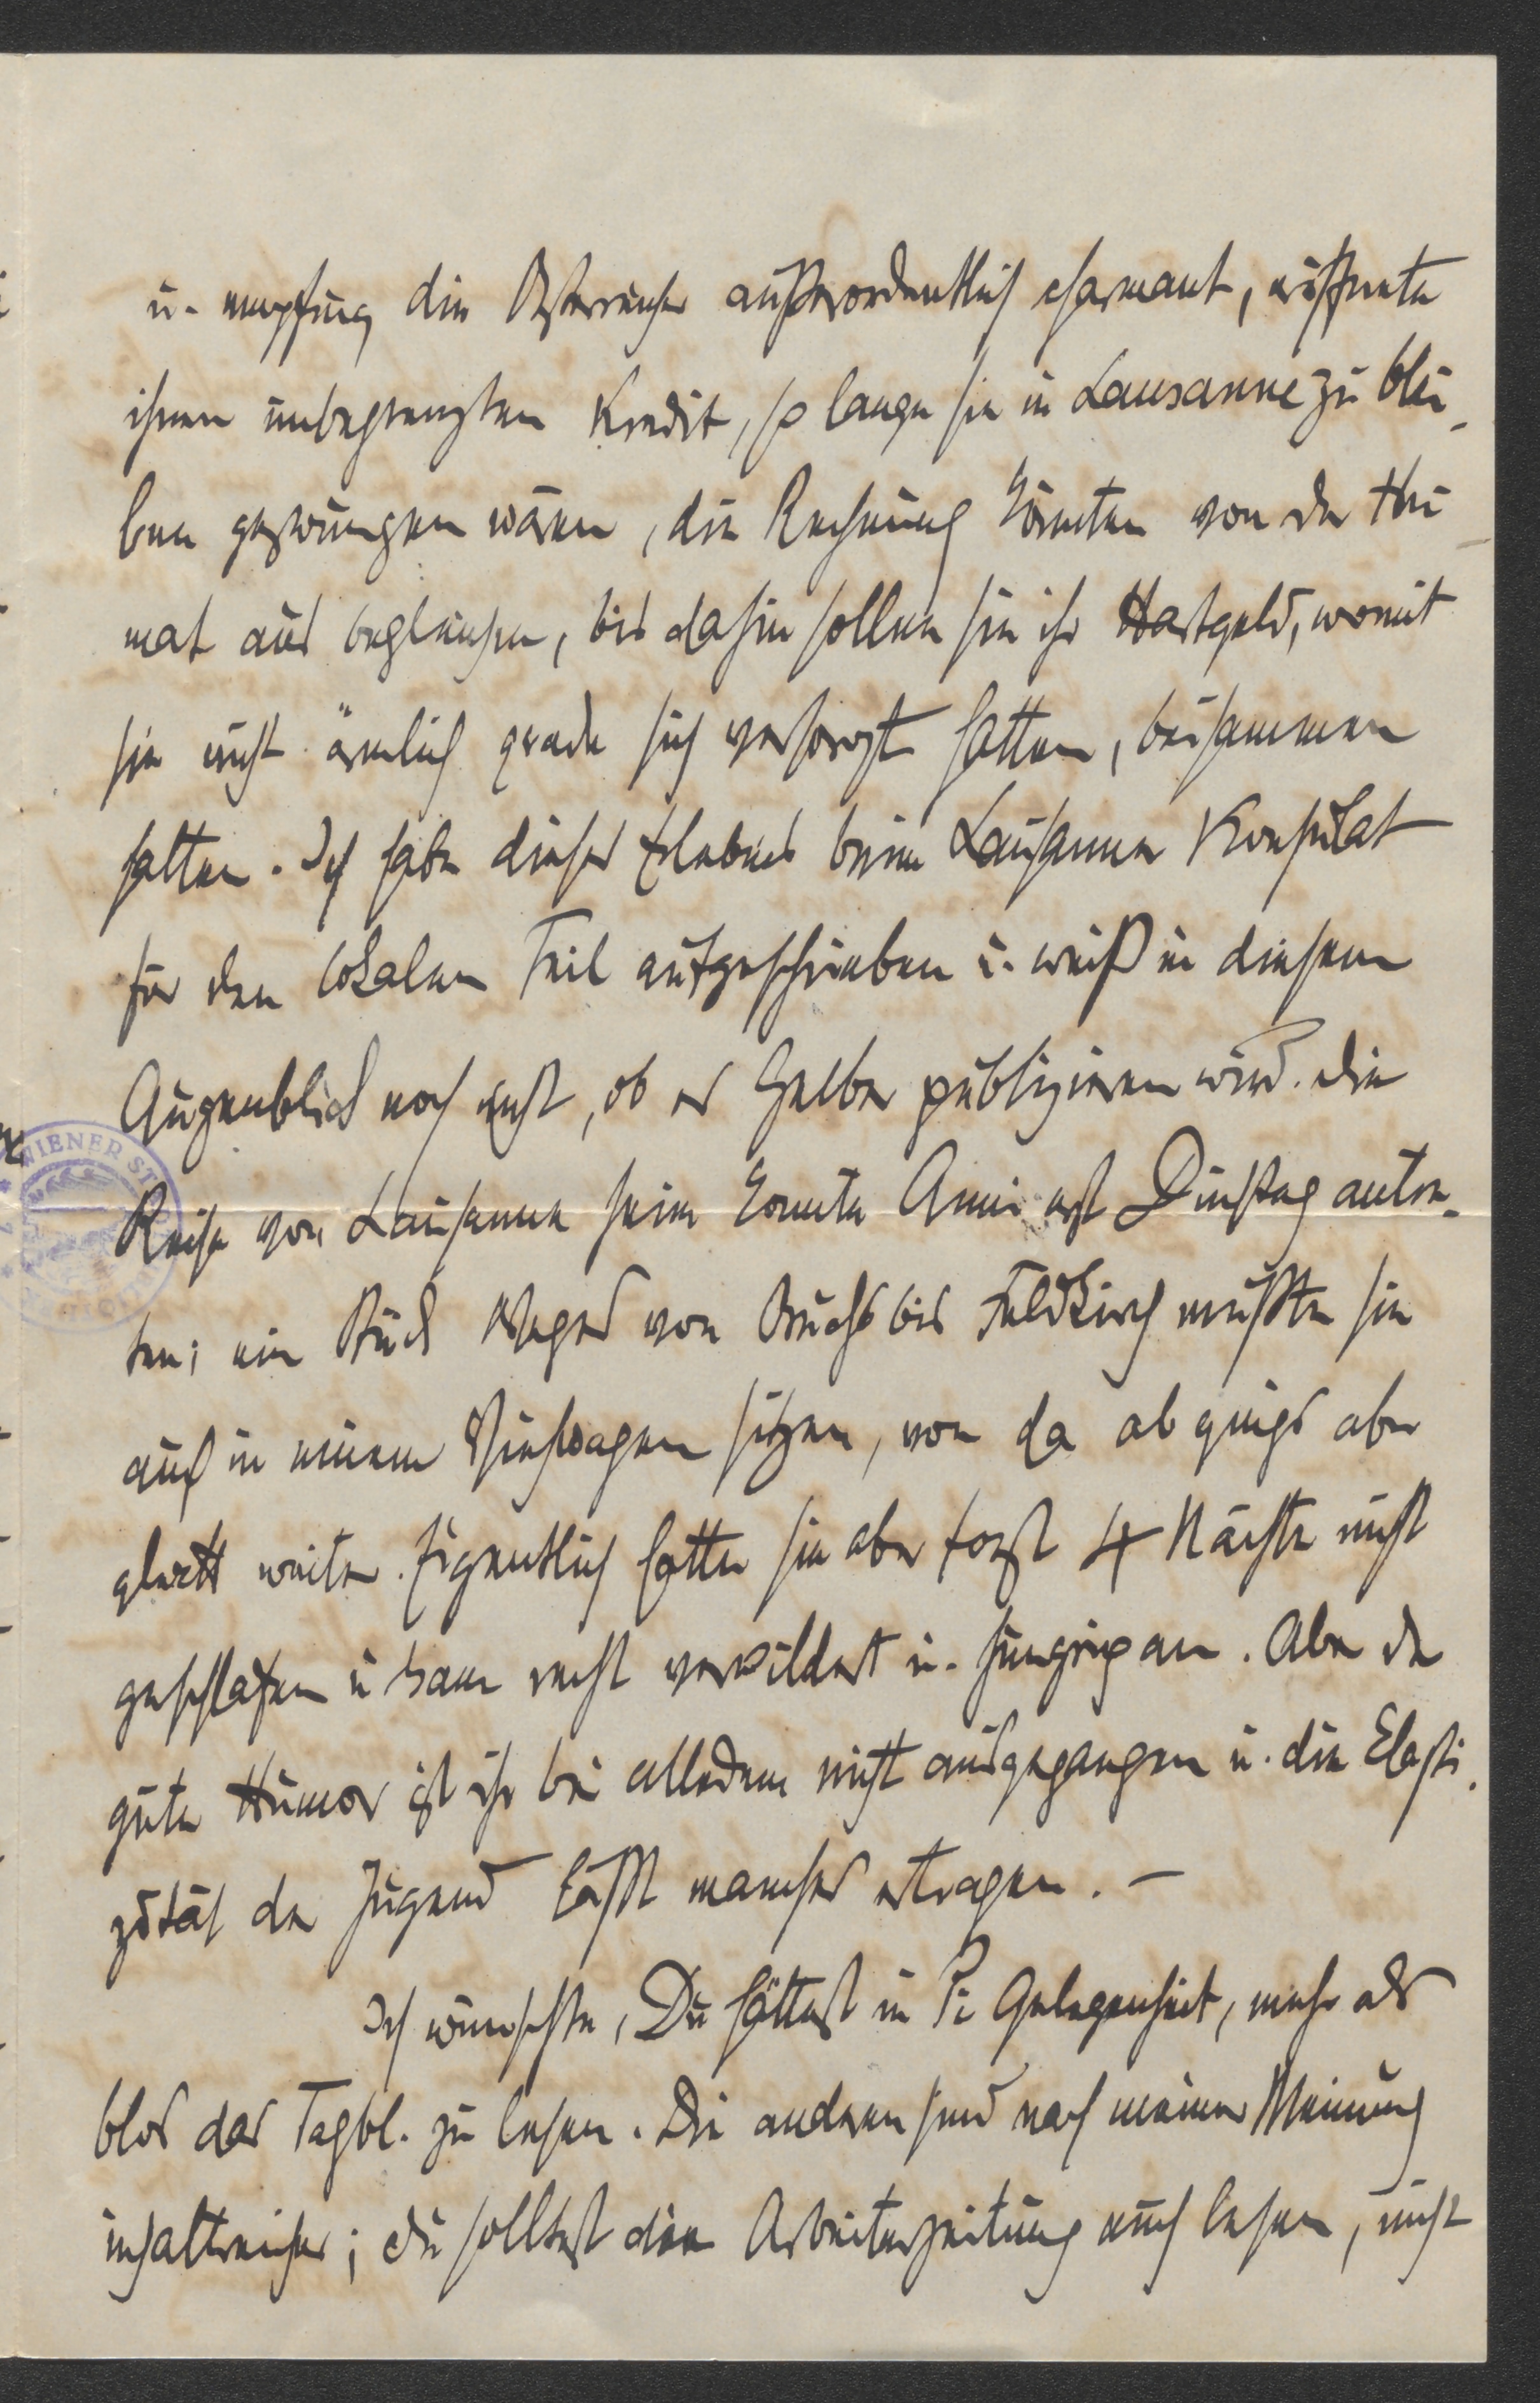 u. empfing die Österreicher außerordentlich charmant, eröffnete
ihnen unbegrenzten Kredit, so lange sie in Lausanne zu blei-
ben gezwungen wären, die Rechnung könnten von der Hei-
mat aus begleichen, bis dahin sollen sie ihr Hartgeld, womit
sie nicht ärmlich grade sich versorgt hatten, beisammen
halten. Ich habe dieses Erlebnis beim Lausanner Konsulat
für den lokalen Teil aufgeschrieben u. weiß in diesem
Augenblick noch nicht, ob es Gelber publizieren wird. Die
Reise von Lausanne heim konnte Anni erst Dienstag antre-
ten; ein Stück Weges von Buchs bis Feldkirch mußten sie
auch in einem Viehwagen sitzen, von da ab gings aber
glatt weiter. Eigentlich hatte sie aber fast 4 Nächte nicht
geschlafen u kam recht verwildert u. hungrig an. Aber der
gute Humor ist ihr bei alledem nicht ausgegangen u. die Elasti-
zität der Jugend läßt manches ertragen. –
Ich wünschte, Du hättest in Gelegenheit, mehr als
blos das Tagbl. zu lesen. Die anderen sind nach meiner Meinung
inhaltreicher; du solltest die Arbeiterzeitung auch lesen, nicht
WIENER ST